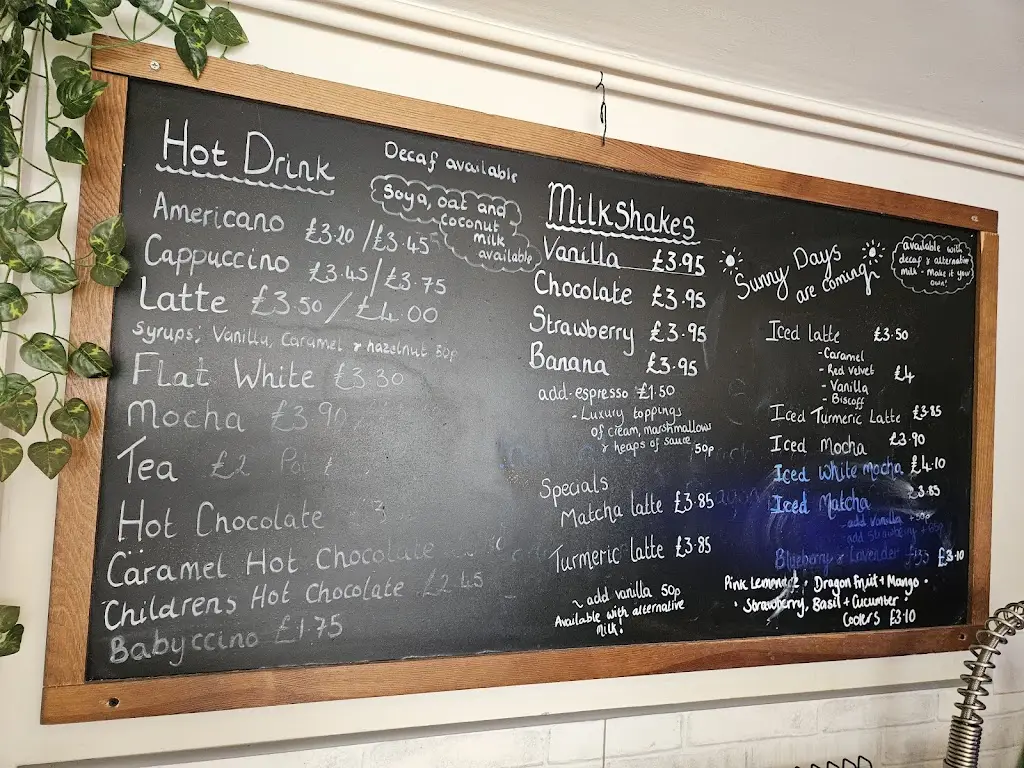 Hot Drink
Decaf available
Soya, oat and
coconut
milk
available
Americano £3.20 / £3.45
Cappuccino £3.45 / £3.75
Latte £3.50 / £4.00
syrups; Vanilla, Caramel & hazelnut 50p
Flat White £3.30
Mocha £3.90
Tea £2 Pot
Hot Chocolate
Caramel Hot Chocolate
Childrens Hot Chocolate £2.45
Babyccino £1.75
Milkshakes
Vanilla £3.95
Chocolate £3.95
Strawberry £3.95
Banana £3.95
add espresso £1.50
- Luxury toppings
of cream, marshmallows
& heaps of sauce 50p
Specials
Matcha latte £3.85
Turmeric latte £3.85
~ add vanilla 50p
Available with alternative
Milk!
Sunny Days
are coming
available with
decaf & alternative
milk - make it your
own!
Iced latte £3.50
- Caramel
- Red velvet
- Vanilla
- Biscoff
£4
Iced Turmeric Latte £3.85
Iced Mocha £3.90
Iced white mocha £4.10
Iced Matcha 3.85
add vanilla
add
Blueberry + Lavender £3.10
Pink Lemonade · Dragon Fruit + Mango ·
· Strawberry, Basil + Cucumber
Coolers £3.10